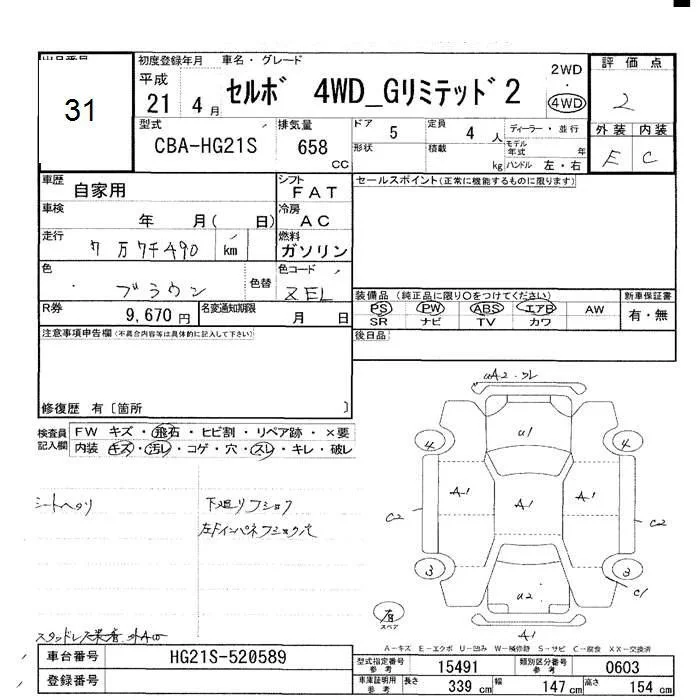 31
初度登録年月 車名・グレード
平成 21 4月 セルボ 4WD_Gリミテッド2 2WD・4WD
評価点 2
型式 CBA-HG21S
排気量 658 CC
ドア 5 定員 4人 ディーラー・並行
形状 積載 kg モデル年式 年
ハンドル 左・右
外装 内装
E C
車歴 自家用
シフト FAT
セールスポイント(正常に機能するものに限ります)
車検 年 月( 日)
冷房 AC
走行 7万7千490 km
燃料 ガソリン
色 ブラウン 色替
色コード ZEL
R券 9,670円 名変通知期限 月 日
装備品 (純正品に限り〇をつけてください) 新車保証書
PS PW ABS エアB AW 有・無
SR ナビ TV カワ
後日品
注意事項申告欄(不具合内容等は具体的に記入して下さい)
修復歴 有〔箇所 〕
検査員記入欄 FW キズ・飛石・ヒビ割・リペア跡・×要
内装 キズ・汚レ・コゲ・穴・スレ・キレ・破レ
シートヘタリ
下廻りフショク
左Fインパネフショク大
A2.
U1
4 4
A1 A1 A1
C2 C2
3 3
C1
U2
有
スペア
A1
A-キズ E-エクボ U-凹み W-補修跡 S-サビ C-腐食 XX-交換済
車台番号 HG21S-520589
登録番号
型式指定番号参考 15491 類別区分番号参考 0603
車庫証明用参考 長さ 339cm 幅 147cm 高さ 154cm